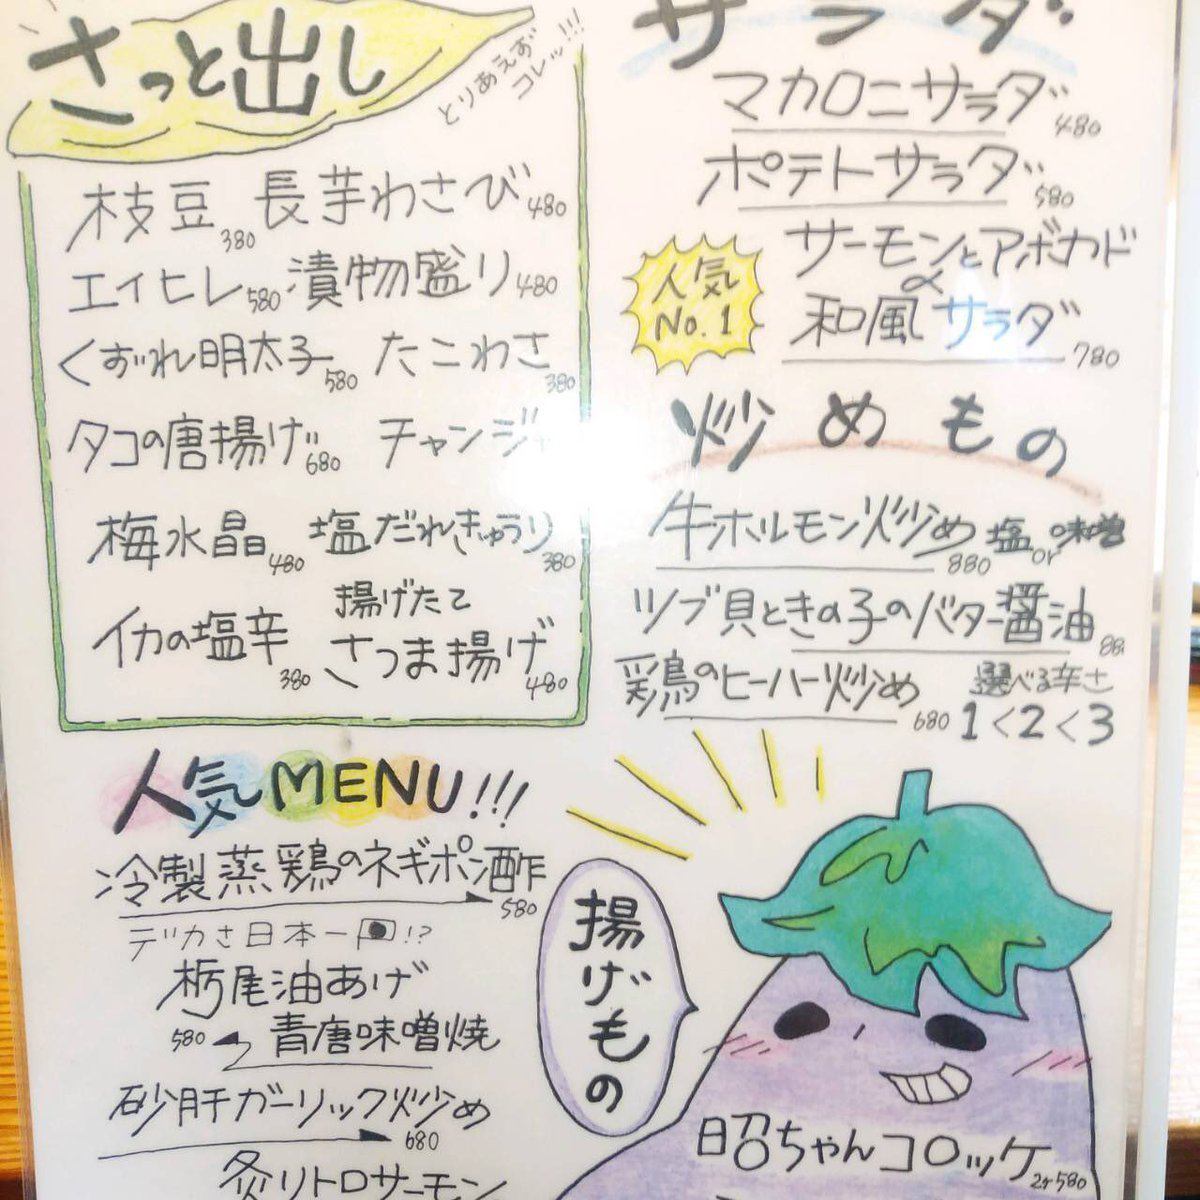 さっと出し
とりあえず
コレッ!!!
枝豆 380 長芋わさび 480
エイヒレ 580 漬物盛り 480
くずれ明太子 580 たこわさ 380
タコの唐揚げ 680 チャンジャ
梅水晶 480 塩だれきゅうり 380
イカの塩辛 380
揚げたて
さつま揚げ 480
人気MENU!!!
冷製蒸鶏のネギポン酢 580
デカさ日本一!?
栃尾油あげ
580 青唐味噌焼
砂肝ガーリック炒め
680
炙りトロサーモン
サラダ
マカロニサラダ 480
ポテトサラダ 580
人気
No.1
サーモンとアボカド
の
和風サラダ 780
炒めもの
牛ホルモン炒め 880 塩or味噌
ツブ貝ときのこのバター醤油 88
鶏のヒーハー炒め 680
選べる辛さ
1<2<3
揚げもの
昭ちゃんコロッケ 2ヶ580